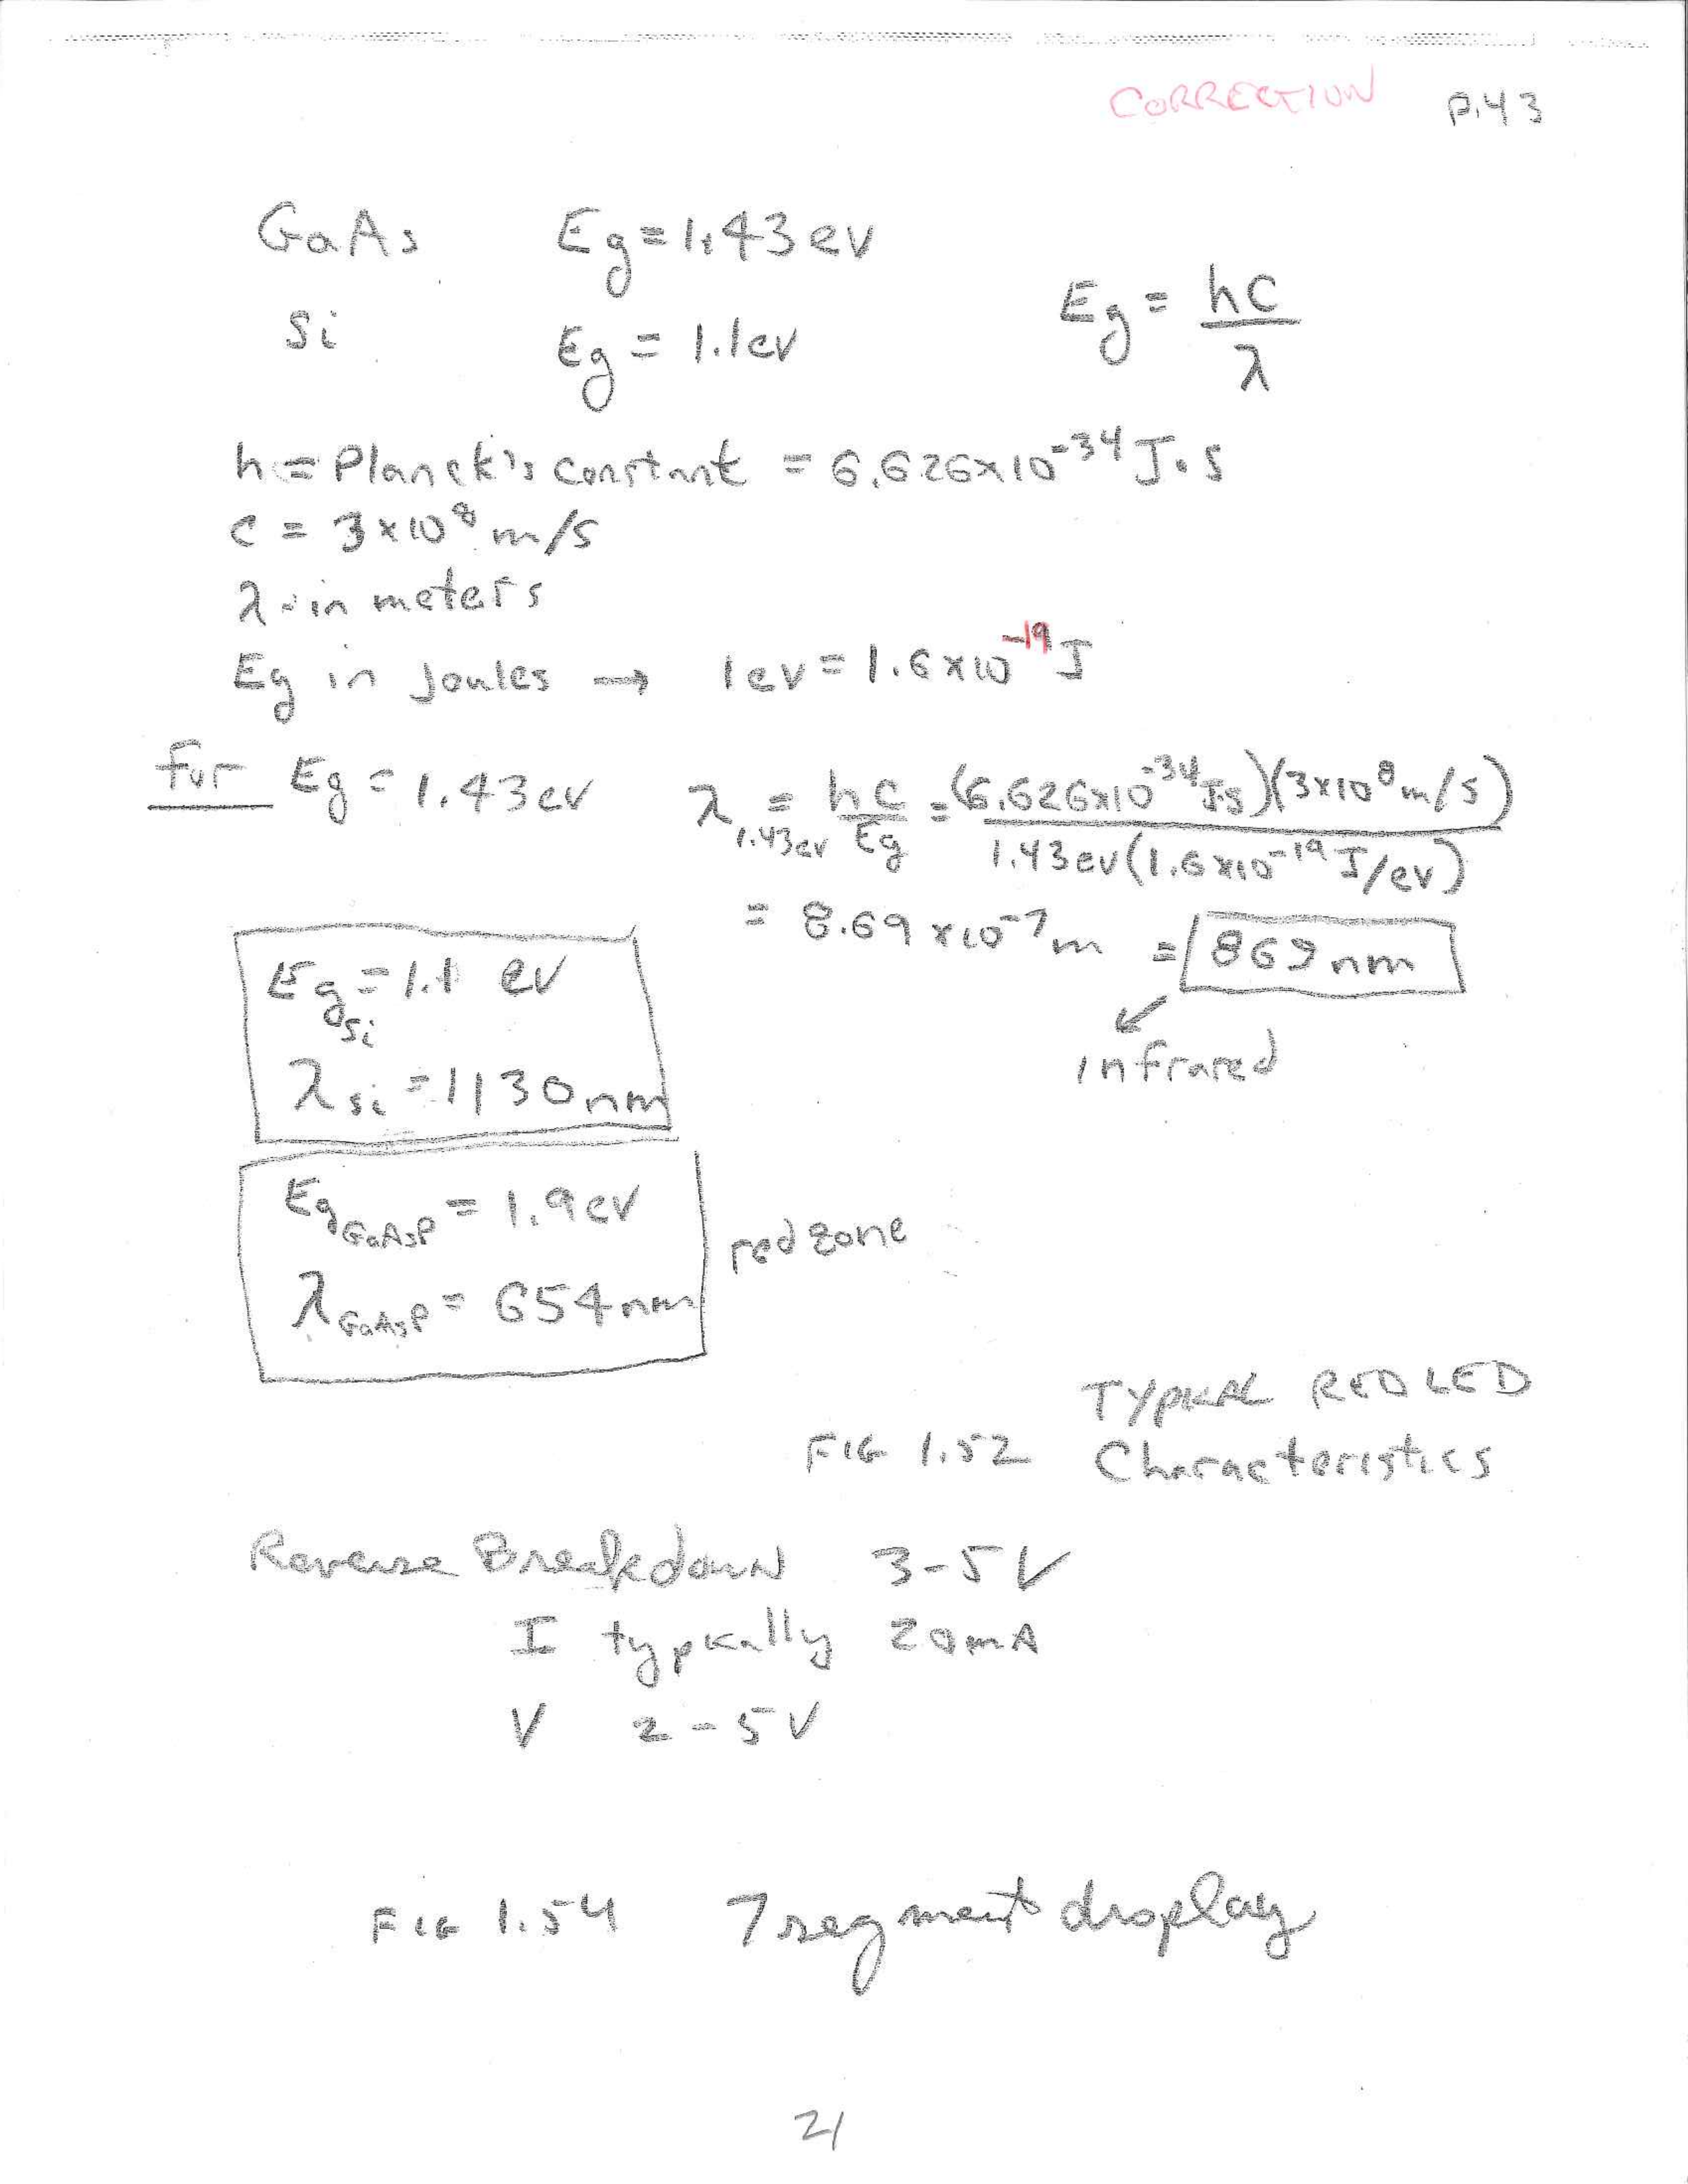 CORRECTION P.43
GaAs Eg = 1.43 ev
Si Eg = 1.1 ev
Eg = hc / λ
h = Planck's constant = 6.626 x 10^-34 J·s
c = 3 x 10^8 m/s
λ - in meters
Eg in Joules → 1 ev = 1.6 x 10^-19 J
for Eg = 1.43 ev λ 1.43ev = hc / Eg = (6.626x10^-34 J·s)(3x10^8 m/s) / 1.43 ev (1.6 x10^-19 J/ev)
= 8.69 x 10^-7 m = 869 nm
infrared
Eg Si = 1.1 ev
λ Si = 1130 nm
Eg GaAsP = 1.9 ev
λ GaAsP = 654 nm
red zone
FIG 1.52 TYPICAL RED LED
Characteristics
Reverse Breakdown 3-5 V
I typically 20 mA
V 2-5 V
FIG 1.54 7 segment display
21